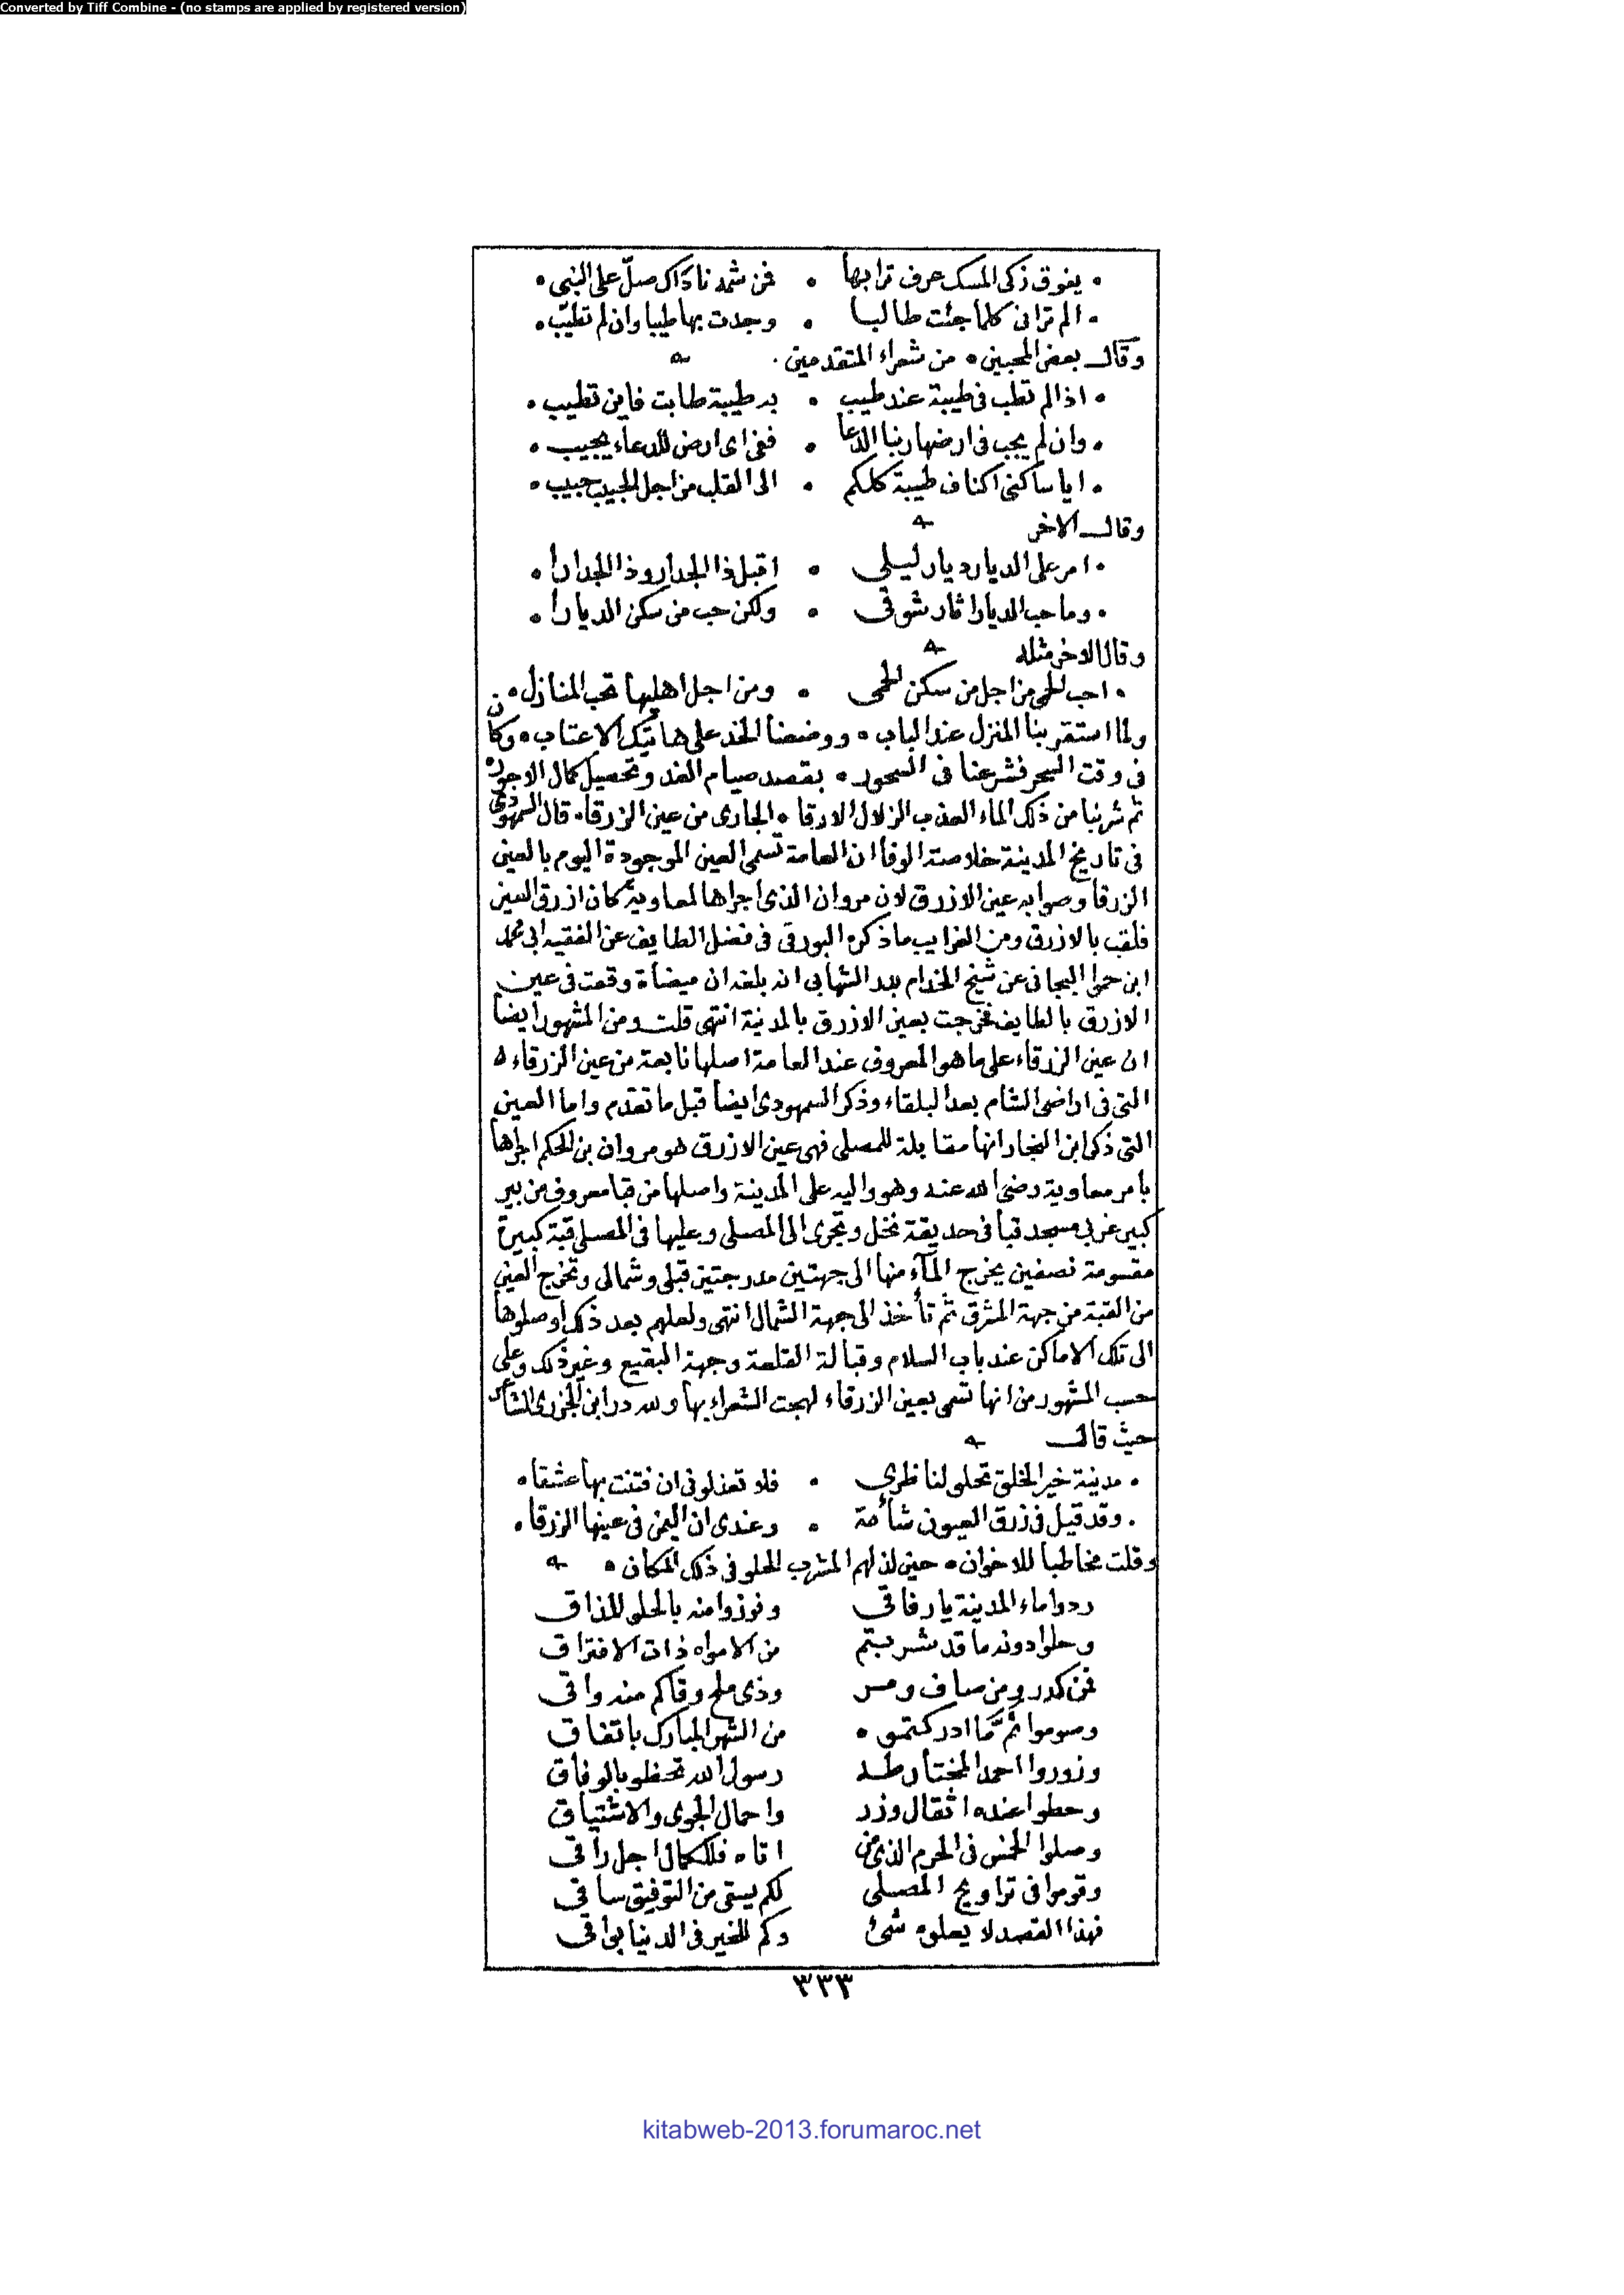 Converted by Tiff Combine - (no stamps are applied by registered version)
۰ يفوق ذكى المسك عرف ترابها ۰ فمن شمه ناداك صلّ على النبى ۰
۰ الم ترانى كلما جئت طالبا ۰ وجدت بها طيبا وان لم تطيّب ۰
وقال بعض المحبين ۰ من شعراء المتقدمين ۰
۰ اذا لم تطب فى طيبة عند طيب ۰ به طيبة طابت فاين تطيب ۰
۰ وان لم يجب فى ارضها ربنا الدعا ۰ ففى اى ارض للدعاء يجيب ۰
۰ ايا ساكنى اكناف طيبة كلكم ۰ الى القلب من اجل الحبيب حبيب ۰
وقال الاخر
۰ امر على الديار ديار ليلى ۰ اقبل ذا الجدار وذا الجدارا ۰
۰ وما حب الديار اثار شوقى ۰ ولكن حب من سكن الديارا ۰
وقال الاخر مثله
۰ احب الحمى من اجل من سكن الحمى ۰ ومن اجل اهليها تحب المنازل ۰
ولما استقر بنا المنزل عند الباب ۰ ووضعنا الخد على هاتيك الاعتاب ۰ وكان
فى وقت السحر فشرعنا فى السحور ۰ بقصد صيام الغد وتحصيل كمال الاجور ۰
ثم شربنا من ذلك الماء العذب الزلال الارقا ۰ الجارى من عين الزرقا ۰ قال السمهودى
فى تاريخ المدينة خلاصة الوفا ان العامة تسمى العين الموجودة اليوم بالعين
الزرقا وصوابه عين الازرق لان مروان الذى اجراها لمعاوية كان ازرق العين
فلقب بالازرق ومن الغرايب ما ذكره البورقى فى فضل الطايف عن الفقيه ابى محمد
ابن حمو البجائى عن شيخ الخدام بدر الشهابى انه بلغه ان ميضأة وقعت فى عين
الازرق بالطايف فخرجت بعين الازرق بالمدينة انتهى قلت ومن المشهور ايضا
ان عين الزرقاء على ما هو المعروف عند العامة اصلها نابعة من عين الزرقاء ۰
التى فى اراضى الشام بعد البلقاء وذكر السمهودى ايضا قبل ما تقدم واما العين
التى ذكر ابن النجار انها مقابلة للمصلى فهى عين الازرق هو مروان بن الحكم اجراها
بامر معاوية رضى الله عنه وهو واليه على المدينة واصلها من قبا معروف من بير
كبير غربى مسجد قبا فى حديقة نخل وتجرى الى المصلى وعليها فى المصلى قبة كبيرة
مقسومة نصفين يخرج المآء منها الى جهتين مدرجتين قبلى وشمالى وتخرج العين
من القبة من جهة المشرق ثم تأخذ الى جهة الشمال انتهى ولعلهم بعد ذلك اوصلوها
الى تلك الاماكن عند باب السلام وقبالة القلعة وجهة البقيع وغير ذلك وعلى
حسب المشهور من انها تسمى بعين الزرقاء لهجت الشعراء بها ولله در ابن الجزرى
حيث قال
۰ مدينة خير الخلق تحلو لناظرى ۰ فلا تعذلونى ان فتنت بها عشقا ۰
۰ وقد قيل فى زرق العيون شآمة ۰ وعندى ان اليمن فى عينها الزرقا ۰
وقلت مخاطبا للاخوان ۰ حين لذ لهم المشرب الحلو فى ذلك المكان ۰
ردوا ماء المدينة يا رفاقى وفوزوا منه بالحلو المذاق
وخلوا دونه ما قد شربتم من الامواه ذات الافتراق
فمن كدر ومن صاف ومر وذى ملح وقاكم منه واقى
وصوموا ثَمَّ ما ادركتمو ۰ من الشهر المبارك باتفاق
وزوروا احمد المختار طه رسول الله تحظو بالوفاق
وحطوا عنده اثقال وزر واحمال الجوى والاشتياق
وصلوا الخمس فى الحرم الذى من اتاه فللكمال اجل راقى
وقوموا فى تراويح المصلى لكم يسقى من التوفيق ساقى
فهذا القصد لا يعلوه شئ وكم للخير فى الدنيا بواقى
٣٣٣
kitabweb-2013.forumaroc.net